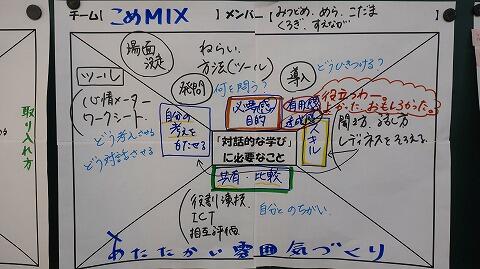 チーム【 こめMIX 】メンバー【 みつどめ、めら、こだま
くろぎ、すえなが 】
場面
設定
ねらい
方法(ツール)
導入
どうひきつける?
発問
何を問う?
ツール
心情メーター
ワークシート
どう考えさせる
どう対話させる
自分の
考えを
もたせる
必要感
目的
有用感
達成感
役立つわー。
よかった、おもしろかった。
スキル
聞き方、話し方
レディネスをそろえる。
「対話的な学び」
に必要なこと
共有・比較
役割演技
ICT
相互評価
自分とのちがい
あたたかい雰囲気づくり
取り入れ方